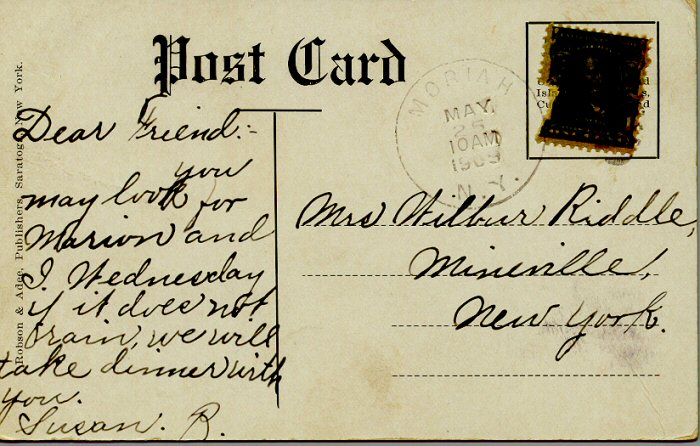 Post Card
Robson & Adee, Publishers, Saratoga, New York.
MORIAH
MAY
25
10AM
1909
N.Y.
Dear Friend:-
you
may look for
Marion and
I Wednesday
if it does not
rain, we will
take dinner with
you.
Susan. R.
Mrs Wilbur Riddle,
Mineville,
New York.